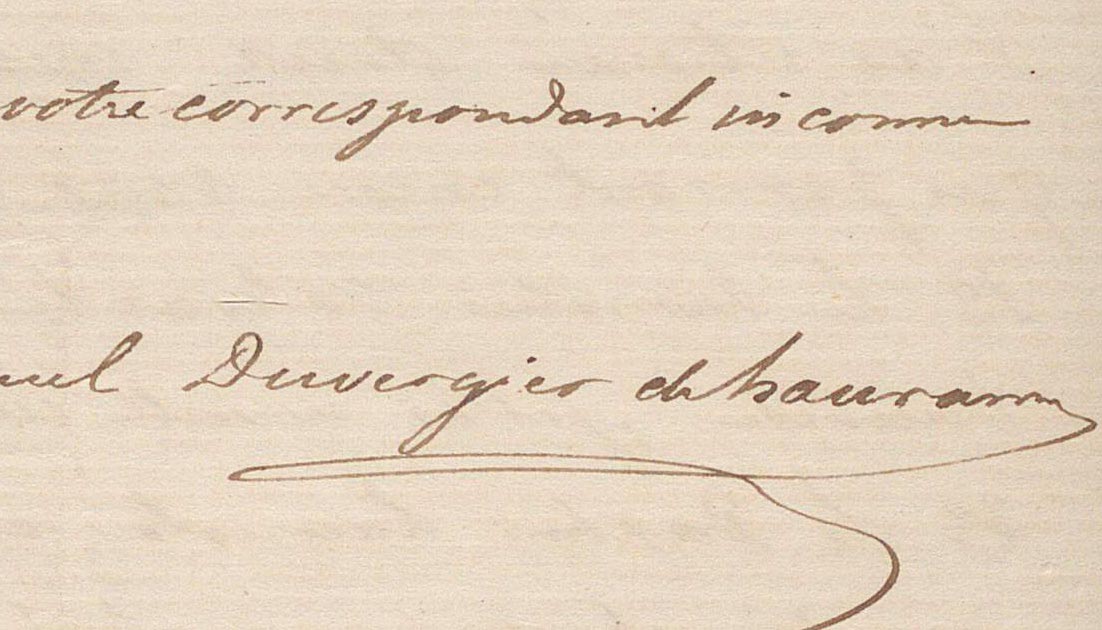 votre correspondant inconnu
uel Duvergier de hauranne